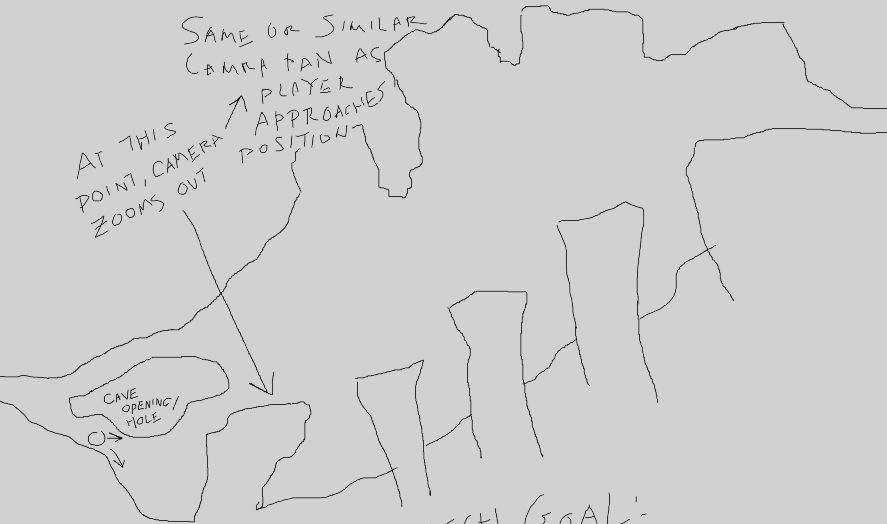 SAME OR SIMILAR
CAMRA PAN AS
PLAYER
APPROACHES
POSITION
AT THIS
POINT, CAMERA
ZOOMS OUT
CAVE
OPENING/
HOLE
GOAL: